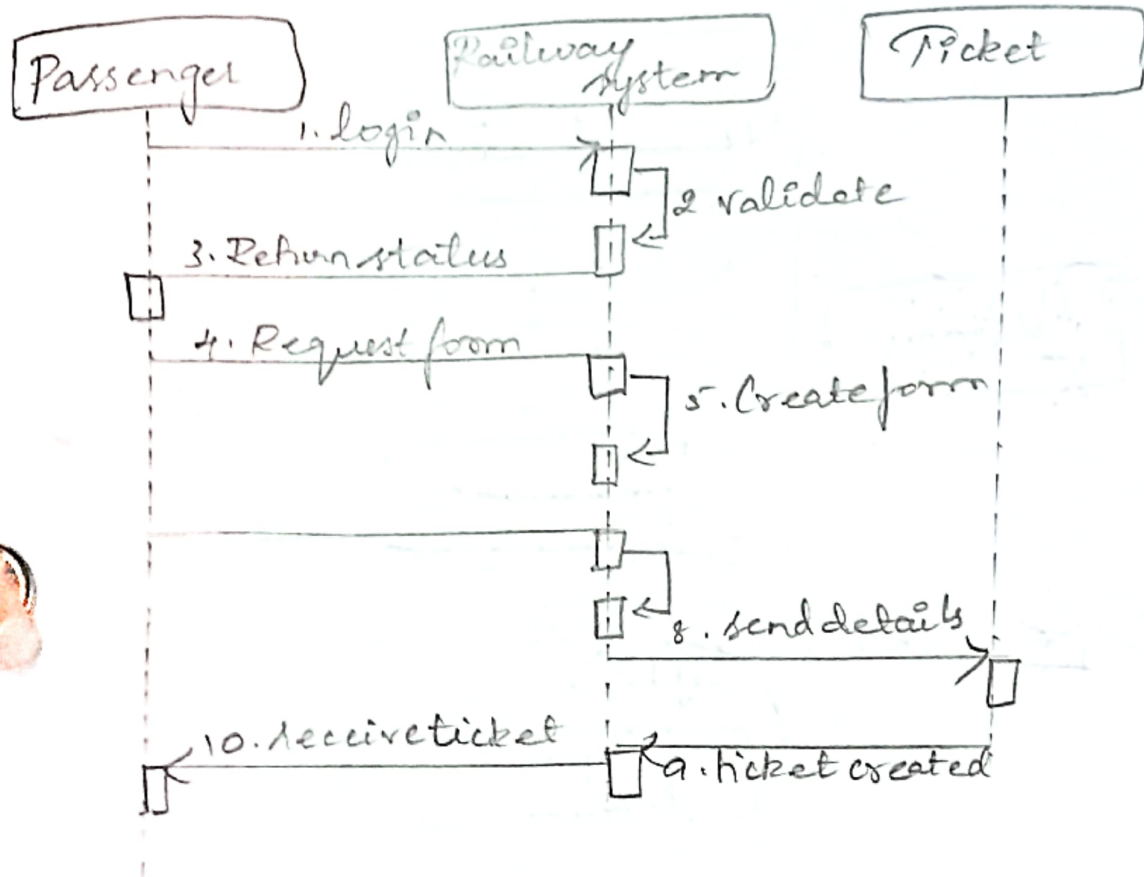 Passenger
Railway
system
Ticket
1. login
2 validate
3. Return status
4. Request form
5. Create form
8. send details
9. ticket created
10. receive ticket